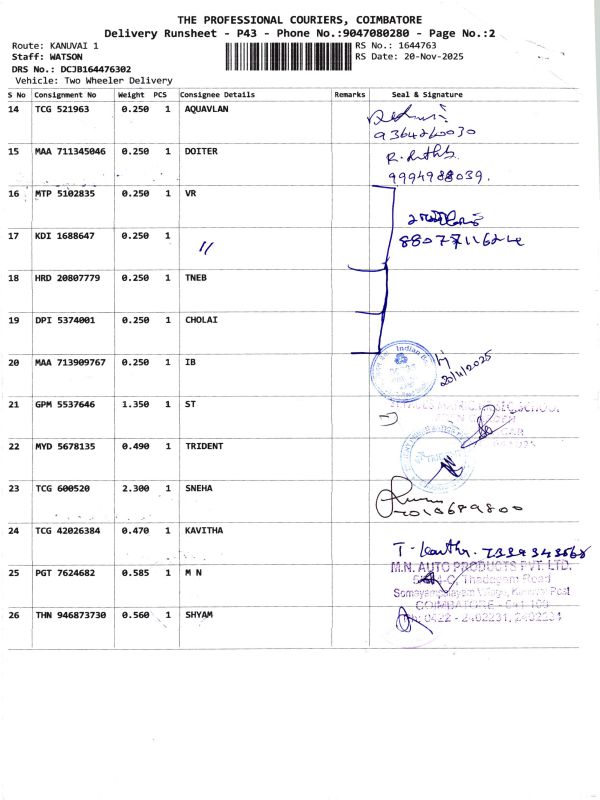 THE PROFESSIONAL COURIERS, COIMBATORE
Delivery Runsheet - P43 - Phone No.:9047080280 - Page No.:2
Route: KANUVAI 1
RS No.: 1644763
Staff: WATSON
RS Date: 20-Nov-2025
DRS No.: DCJB164476302
Vehicle: Two Wheeler Delivery
S No Consignment No Weight PCS Consignee Details Remarks Seal & Signature
14 TCG 521963 0.250 1 AQUAVLAN
9364260030
15 MAA 711345046 0.250 1 DOITER
9994988039.
16 MTP 5102835 0.250 1 VR
17 KDI 1688647 0.250 1 "
8807711624
18 HRD 20807779 0.250 1 TNEB
19 DPI 5374001 0.250 1 CHOLAI
20 MAA 713909767 0.250 1 IB
Indian
20/11/2025
21 GPM 5537646 1.350 1 ST
22 MYD 5678135 0.490 1 TRIDENT
23 TCG 600520 2.300 1 SNEHA
24 TCG 42026384 0.470 1 KAVITHA
25 PGT 7624682 0.585 1 M N
M.N. AUTO PRODUCTS PVT. LTD.
Thadagam Road
Somayampalayam Village, Kanuvai Post
COIMBATORE - 641 108
26 THN 946873730 0.560 1 SHYAM
Ph: 0422 - 2402231, 2402234